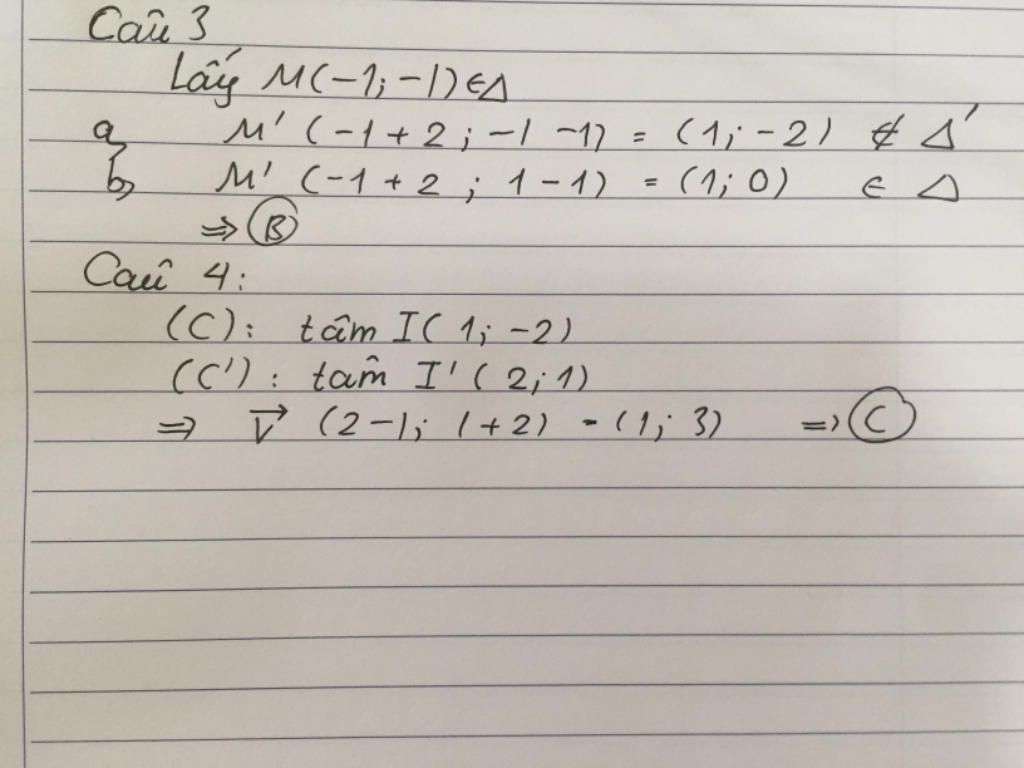 Câu 3
Lấy M(-1; -1) ∈ Δ
a, M' (-1 + 2 ; -1 -1) = (1; -2) ∉ Δ'
b, M' (-1 + 2 ; 1 - 1) = (1; 0) ∈ Δ
⇒ B
Câu 4:
(C): tâm I( 1; -2)
(C') : tâm I' ( 2; 1)
⇒ v⃗ (2-1; 1+2) = (1; 3) ⇒ C